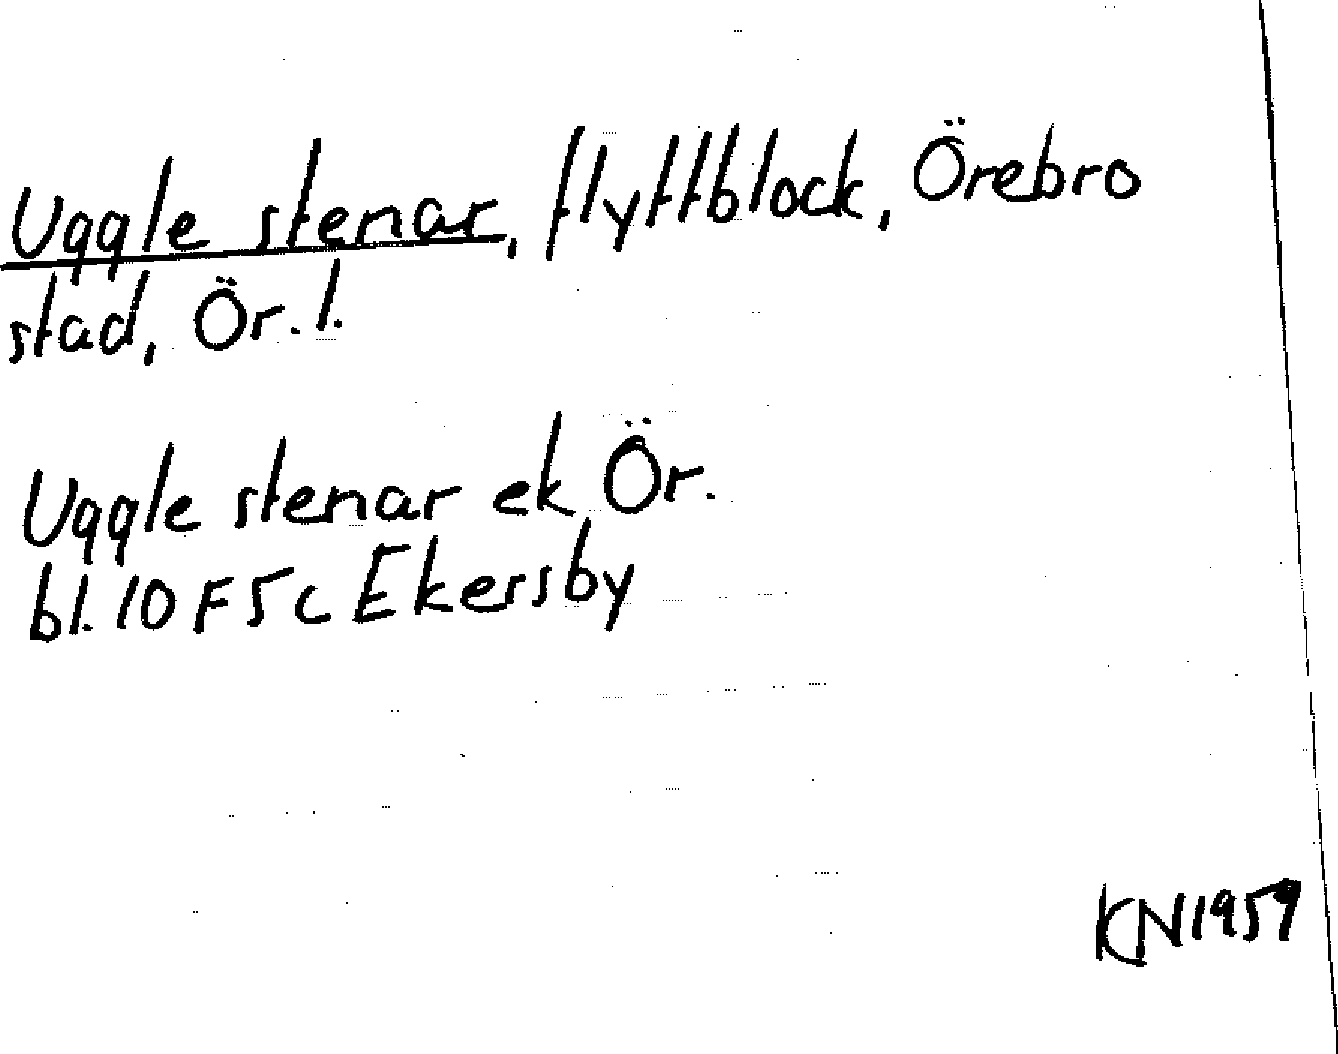 Uggle stenar, flyttblock, Örebro
stad, Ör. l.
Uggle stenar ek Ör.
bl. 10 F 5 c Ekersby
KN 1959